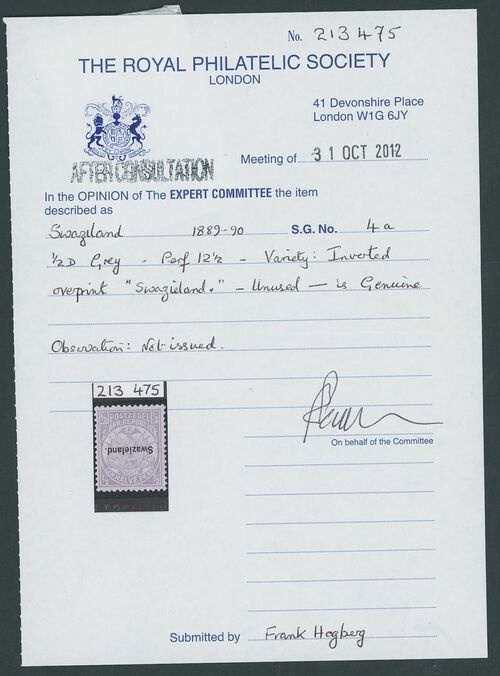 No. 213 475
THE ROYAL PHILATELIC SOCIETY
LONDON
41 Devonshire Place
London W1G 6JY
AFTER CONSULTATION
Meeting of 31 OCT 2012
In the OPINION of The EXPERT COMMITTEE the item
described as
Swaziland 1889-90 S.G. No. 4a
1/2D Grey - Perf 12½ - Variety: Inverted
overprint "Swazieland." - Unused - is Genuine
Observation: Not issued.
213 475
POSTZEGEL
Swazieland.
HALVE
On behalf of the Committee
Submitted by Frank Hogberg